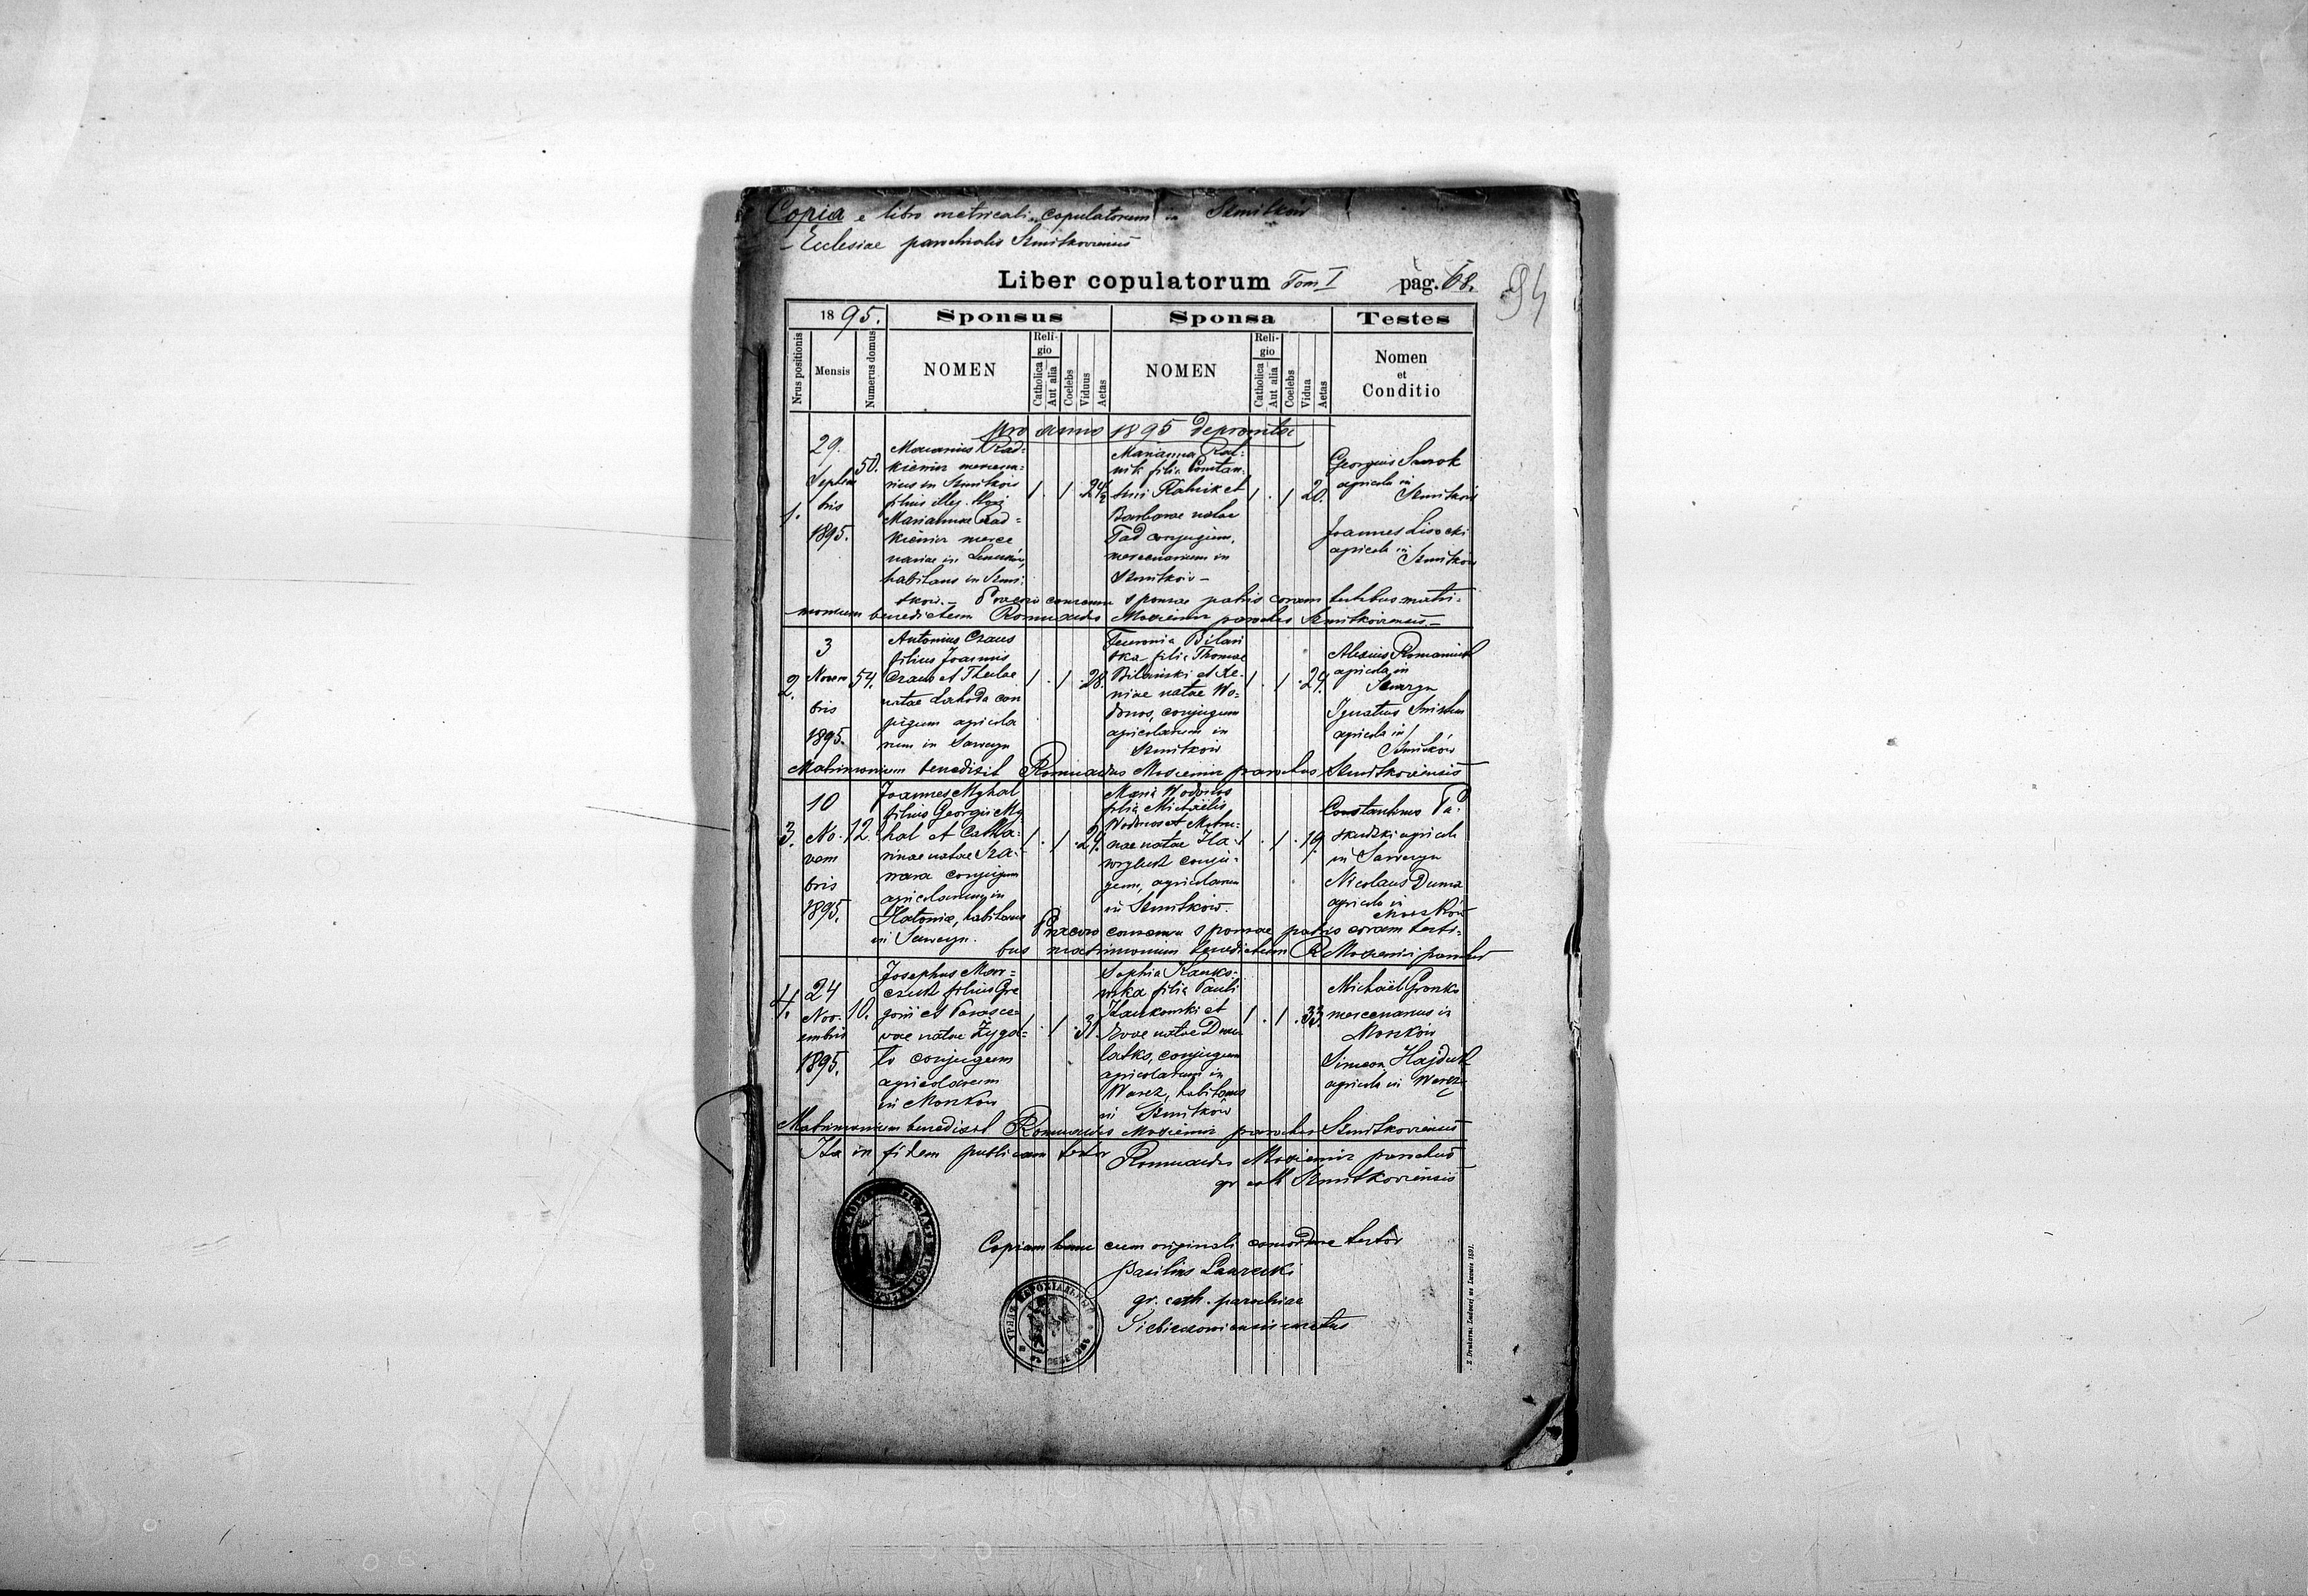 Copia e libro metricali copulatorum in Szmitków
Ecclesiae parochialis Szmitkoviensis
Liber copulatorum Tom I pag. 68.
94
1895.
Sponsus
Sponsa
Testes
Nrus positionis
Mensis
Numerus domus
NOMEN
Religio
Catholica
Aut alia
Coelebs
Viduus
Aetas
NOMEN
Religio
Catholica
Aut alia
Coelebs
Vidua
Aetas
Nomen
et
Conditio
pro anno 1895 deprompta
1.
29.
Septem
bris
1895.
50.
Macarius Rad=
kiewicz mercena=
rius in Szmitków
filius illeg. thori
Mariannae Rad=
kiewicz merce
nariae in
habitans in Szmi:
tków.
1 . 1 . 24½
Marianna Rat=
nik filia Constan=
tini Ratnik et
Barbarae natae
Tad conjugum,
mercenariorum in
Szmitków
1 . 1 20.
Georgius
agricola in
Szmitków
Joannes Lisocki
agricola in
Szmitków
Praevio consensu sponsae patris coram testibus matri=
monium benedictum Romualdus parochus Szmitkoviensis
2.
3
Novem
bris
1895.
54.
Antonius Craus
filius Joannis
Craus et Theclae
natae Lahoda con
jugum agricola
rum in Sawczyn
1 . 1 . 28.
Feuronia Bilań
ska filia Thomae
Bilański et Xe=
niae natae Wo=
donos, conjugum
agricolarum in
Szmitków
1 . 1 . 24.
Alexius Romaniuk
agricola in
Sawczyn
Ignatius
agricola in
Szmitków
Matrimonium benedixit Romualdus parochus Szmitkoviensis
3.
10
No=
vem
bris
1895.
12.
Joannes Myhal
filius Georgii My
hal et Catha=
rinae natae
conjugum
agricolarum in
habitans
in Sawczyn.
1 . 1 . 24.
Maria Wodonos
filia Michaelis
Wodonos et Matro=
nae natae Ha=
wryluk conju=
gum, agricolarum
in Szmitków.
1 . 1 . 19.
Constantinus
agricola
in Sawczyn
Nicolaus Duma
agricola in
Moszków
Praevio consensu sponsae patris coram testi=
bus matrimonium benedictum R parochus
4.
24
Nov=
embris
1895.
10.
Josephus Mar=
czuk filius Gre
gorii et Parasce=
vae natae Zygal=
lo conjugum
agricolarum
in Moszków
1 . 1 . 31.
Sophia Kanko=
wska filia Pauli
Kankowski et
Evae natae
conjugum
agricolarum in
Warez, habitans
in Szmitków
1 . 1 . 33.
Michaël Gronko
mercenarius in
Moszków
Simeon Hajduk
agricola in Warez
Matrimonium benedixit Romualdus parochus Szmitkoviensis
Ita in fidem publicam testor Romualdus parochus
gr cath Szmitkoviensis
Copiam hanc cum originali concordare testor
gr. cath. parochiae
Z Drukarni Ludowej we Lwowie 1891.